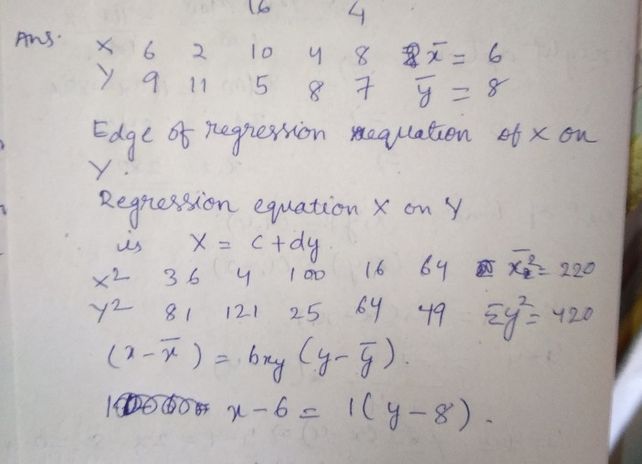 16 4
Ans. X 6 2 10 4 8 x̄ = 6
Y 9 11 5 8 7 ȳ = 8
Edge of regression equation of X on
Y.
Regression equation X on Y
is X = c + dy.
X² 36 4 100 16 64 = 220
Y² 81 121 25 64 49 Σy² = 420
(x - x̄) = bxy (y - ȳ).
x - 6 = 1(y - 8).